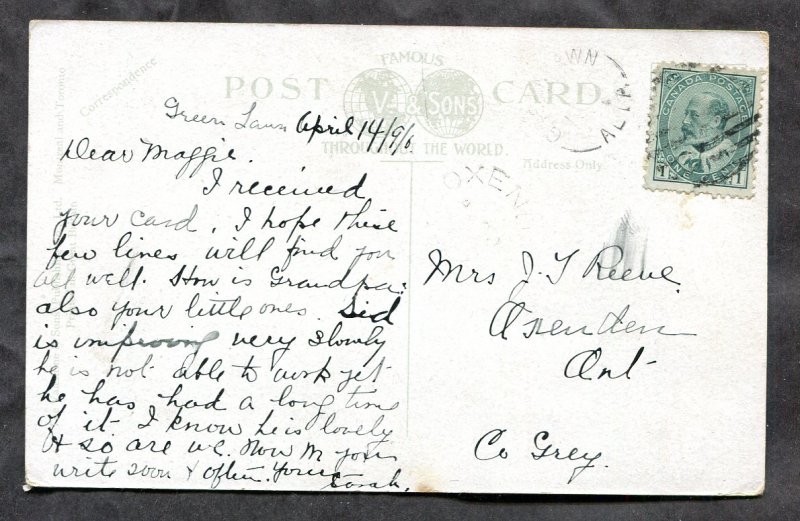 FAMOUS
POST CARD
V. & SONS
THROUGHOUT THE WORLD.
Correspondence
Address Only
Montreal and Toronto
CANADA POSTAGE
ONE CENT
1 1
OXEN
WN
ALTA
Green Lawn April 14/9/6
Dear Maggie.
I received
your card. I hope these
few lines will find you
all well. How is Grandpa:
also your little ones. Sid
is improving very slowly
he is not able to work yet
he has had a long time
of it I know he is lonely
& so are we. Now M
write soon & often. Yours
Sarah.
Mrs J. T Reeve.
Oxenden
Ont
Co Grey.